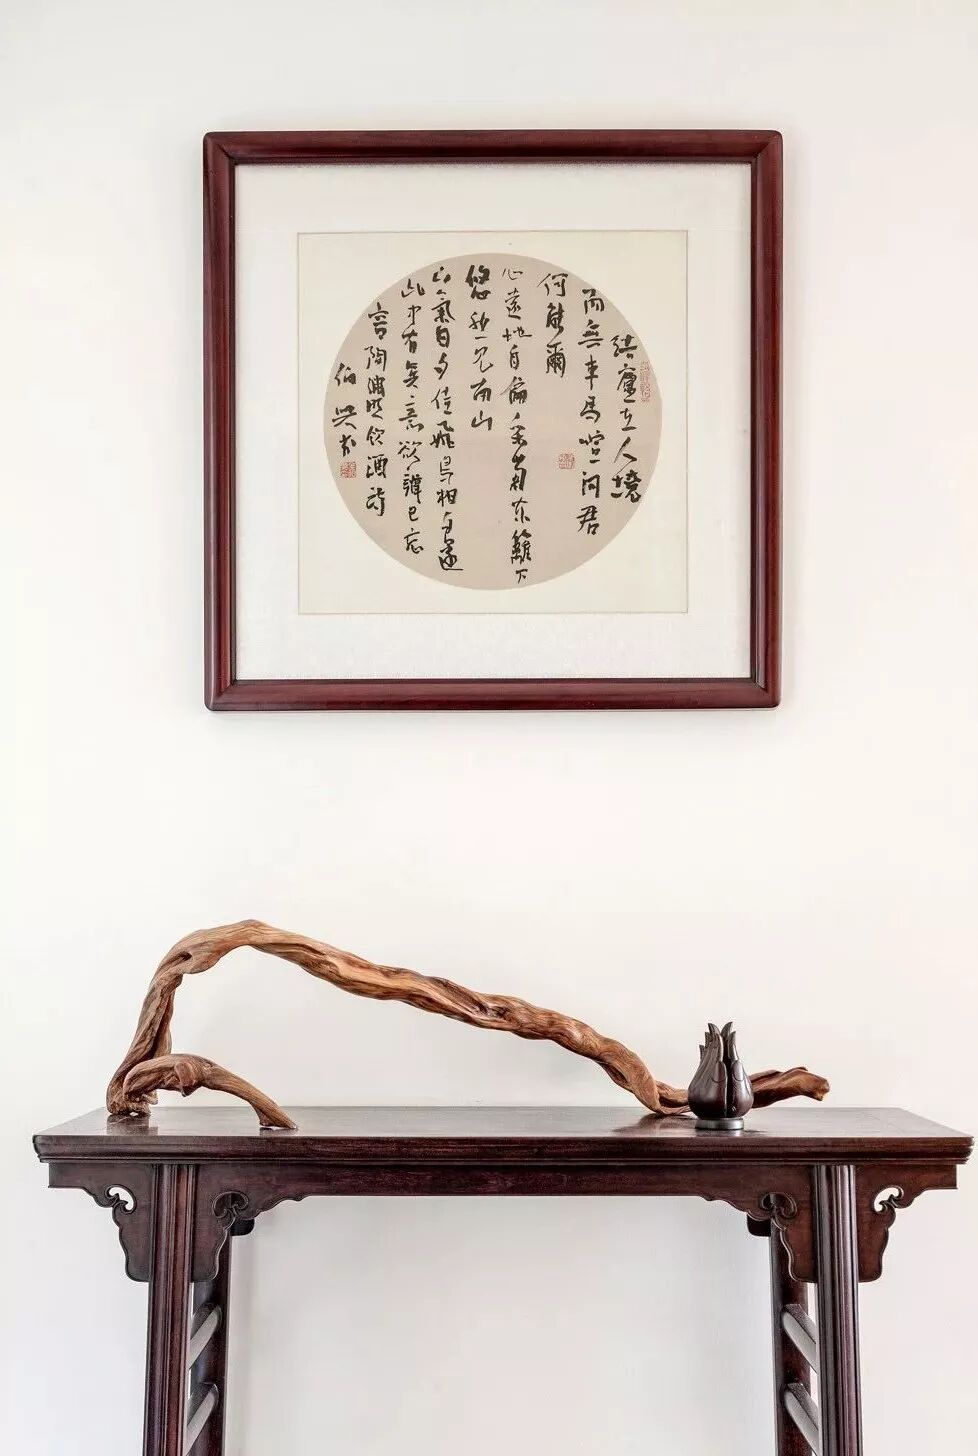 結廬在人境
而無車馬喧問君
何能爾
心遠地自偏采菊東籬下
悠然見南山
山氣日夕佳飛鳥相與還
此中有真意欲辯已忘
言陶淵明飲酒詩
伯